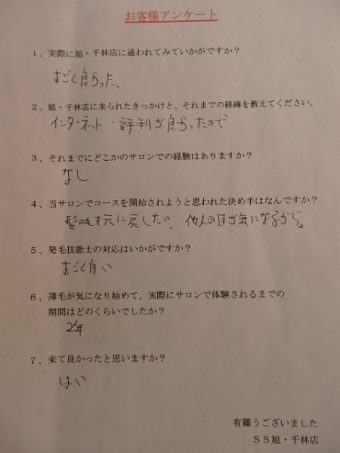 お客様アンケート
1、実際に旭・千林店に通われてみていかがですか？
すごく良かった。
2、旭・千林店に来られたきっかけと、それまでの経緯を教えてください。
インターネット・評判が良かったので
3、それまでにどこかのサロンでの経験はありますか？
なし
4、当サロンでコースを開始されようと思われた決め手はなんですか？
髪の毛を元に戻したい。他人の目が気になるから。
5、発毛技能士の対応はいかがですか？
すごく良い
6、薄毛が気になり始めて、実際にサロンで体験されるまでの
期間はどのくらいでしたか？
2年
7、来て良かったと思いますか？
はい
有難うございました
ＳＳ旭・千林店